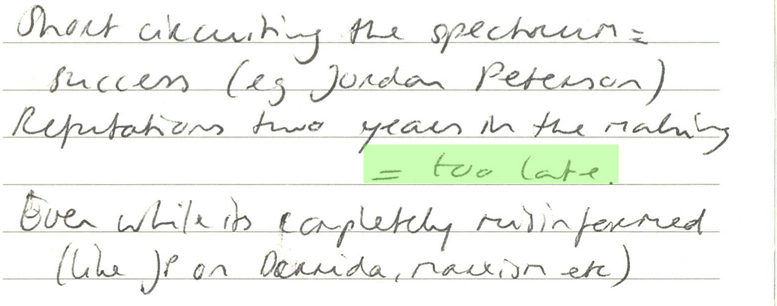 Short circuiting the spectrum =
success (eg Jordan Peterson)
Reputations two years in the making
= too late.
Even while its completely misinformed
(like JP on Derrida, marxism etc)